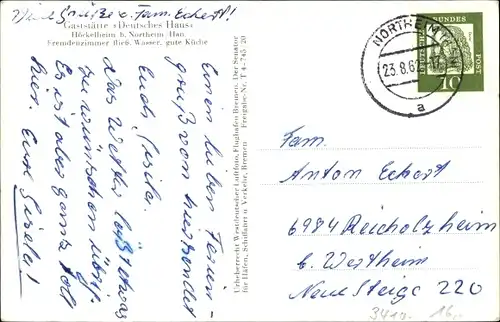 Viele Grüße v. Fam. Eckert!
Gaststätte »Deutsches Haus«
Höckelheim b. Northeim/Han.
Fremdenzimmer fließ. Wasser, gute Küche
Einen lieben Ferien-
gruß von
Euch Gisela.
Das Wetter läßt etwas
zu wünschen übrig.
Es ist aber ganz toll
hier. Eure Gisela!
Urheberrecht Westdeutscher Luftfoto, Flughafen Bremen. Der Senator
für Häfen, Schiffahrt u. Verkehr, Bremen Freigabe-Nr.
NORTHEIM
23.8.62
a
DEUTSCHE BUNDESPOST
10
Fam.
Anton Eckert
6984 Reicholzheim
b. Wertheim
Neue Steige 220